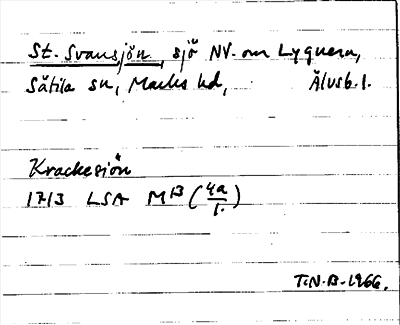 St. Svansjön, sjö NV. om Lygnern,
Sätila sn, Marks hd, Älvsb. l.
Krackesjön
1713 LSA M B (4a/1.)
T:N.B. 1966.